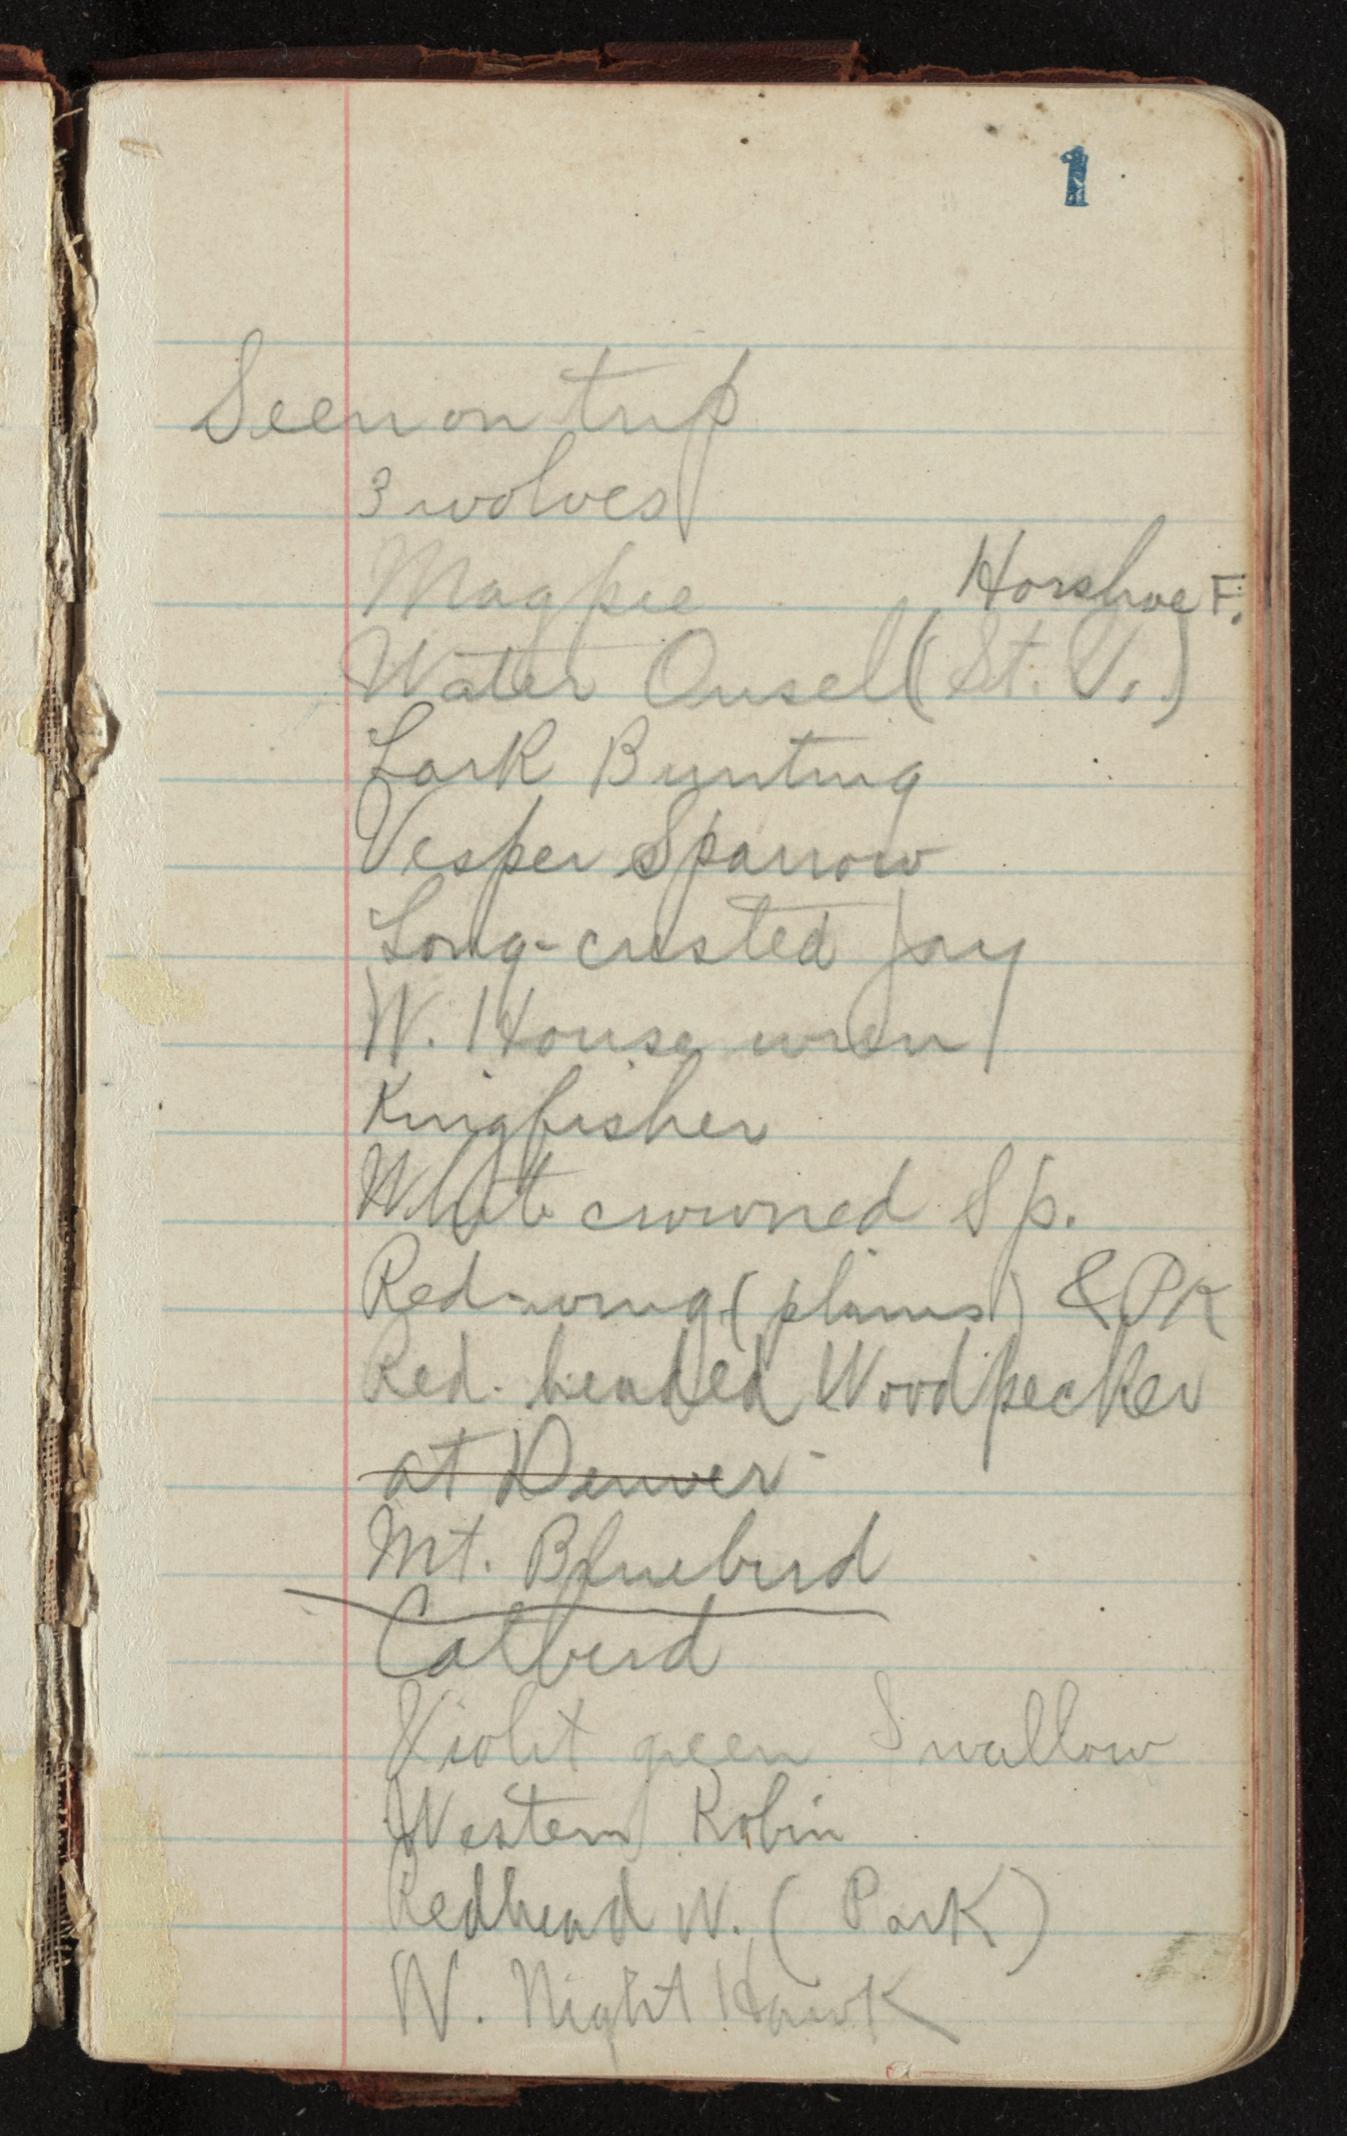 1
Seen on trip
3 wolves
Magpie
Horshoe F.
Water Ousel (St. V.)
Lark Bunting
Vesper Sparrow
Long-crested Jay
W. House wren
Kingfisher
White crowned Sp.
Red-wing (plains) & PK
Red-headed Woodpecker
at Denver -
Mt. Bluebird
Catbird
Violet green Swallow
Western Robin
Redhead W. (Park)
W. Night Hawk